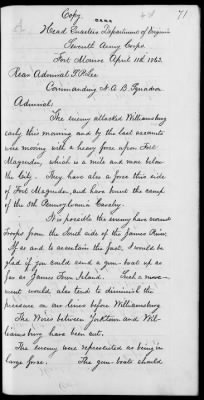 Copy
71
Head Quarters Department of Virginia
Seventh Army Corps.
Fort Monroe April 11th 1863.
Rear Admiral S. P. Lee
Commanding N. A. B. Squadron
Admiral;
The enemy attacked Williamsburg
early this morning and by the last accounts
was moving with a heavy force upon Fort
Magruder, which is a mile and more below
the City. They have also a force this side
of Fort Magruder and have burnt the camp
of the 5th Pennsylvania Cavalry.
It is possible the enemy have crossed
troops from the South side of the James River
If so and to ascertain the fact, I would be
glad if you could send a gun-boat up as
far as James Town Island. Such a move-
ment would also tend to diminish the
pressure on our lines before Williamsburg
The Wires between Yorktown and Wil-
liamsburg have been cut.
The enemy were represented as being in
large force. The gun-boats should